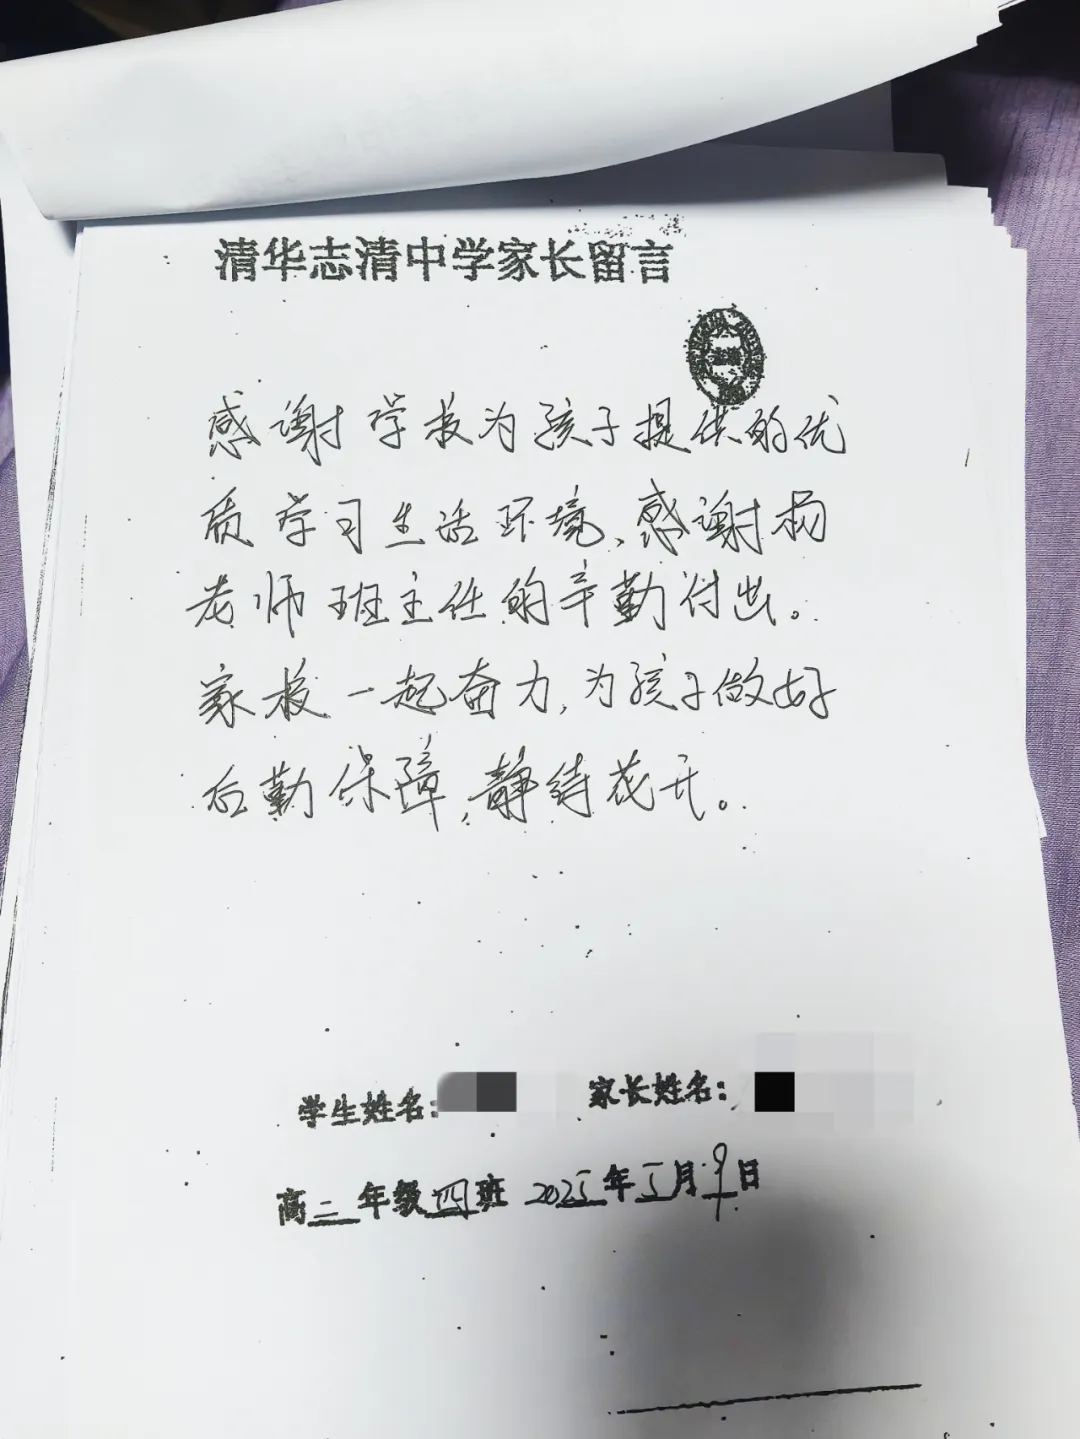 清华志清中学家长留言
感谢学校为孩子提供的优
质学习生活环境、感谢杨
老师班主任的辛勤付出。
家校一起奋力,为孩子做好
后勤保障,静待花开。
学生姓名: 家长姓名:
高二年级四班 2025年5月9日